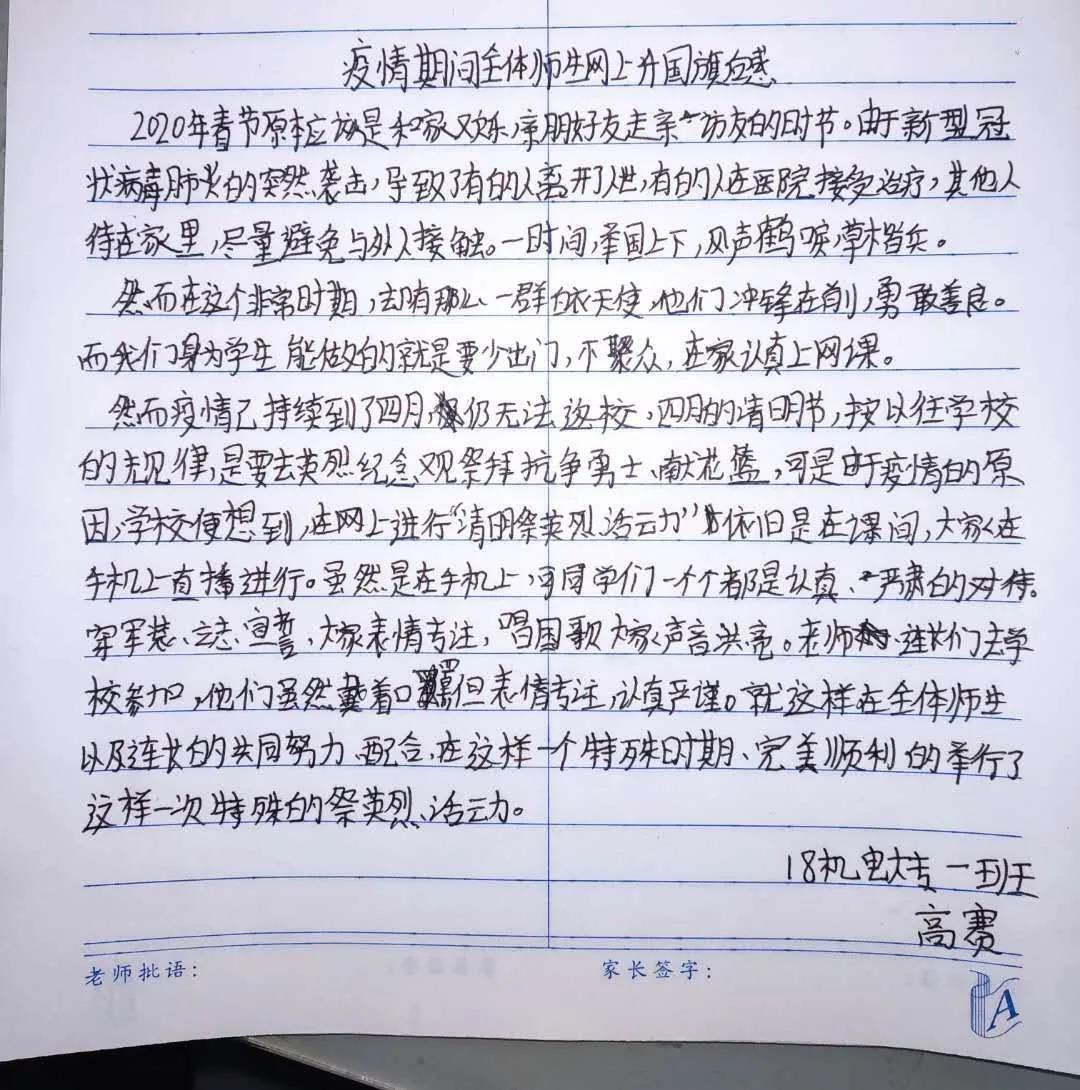 疫情期间全体师生网上升国旗有感
2020年春节原本应该是和家欢乐,亲朋好友走亲访友的时节。由于新型冠
状病毒肺炎的突然袭击,导致了有的人离开人世,有的人在医院接受治疗,其他人
待在家里,尽量避免与外人接触。一时间,举国上下,风声鹤唳,草木皆兵。
然而在这个非常时期,却有那么一群白衣天使,他们冲锋在前,勇敢善良。
而我们身为学生能做的就是要少出门,不聚众,在家认真上网课。
然而疫情已持续到了四月,仍无法返校,四月的清明节,按以往学校
的规律,是要去英烈纪念观祭拜抗争勇士、献花篮,可是由于疫情的原
因,学校便想到,在网上进行“清明祭英烈活动”依旧是在课间,大家在
手机上直播进行。虽然是在手机上,可同学们一个个都是认真、严肃的对待。
穿军装、立志、宣誓,大家表情专注,唱国歌大家声音洪亮。老师、连长们去学
校参加,他们虽然戴着口罩但表情专注,认真严谨。就这样在全体师生
以及连长的共同努力、配合,在这样一个特殊时期、完美顺利的举行了
这样一次特殊的祭英烈活动。
18机电大专一班
高赛
老师批语:
家长签字:
A